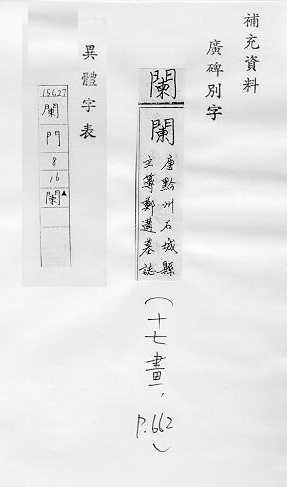 補充資料
廣碑別字
闌
闌
唐黔州石城縣
主簿鄭遘墓誌
(十七畫, P.662)
異體字表
15627
闌
門
8
16
闌▲